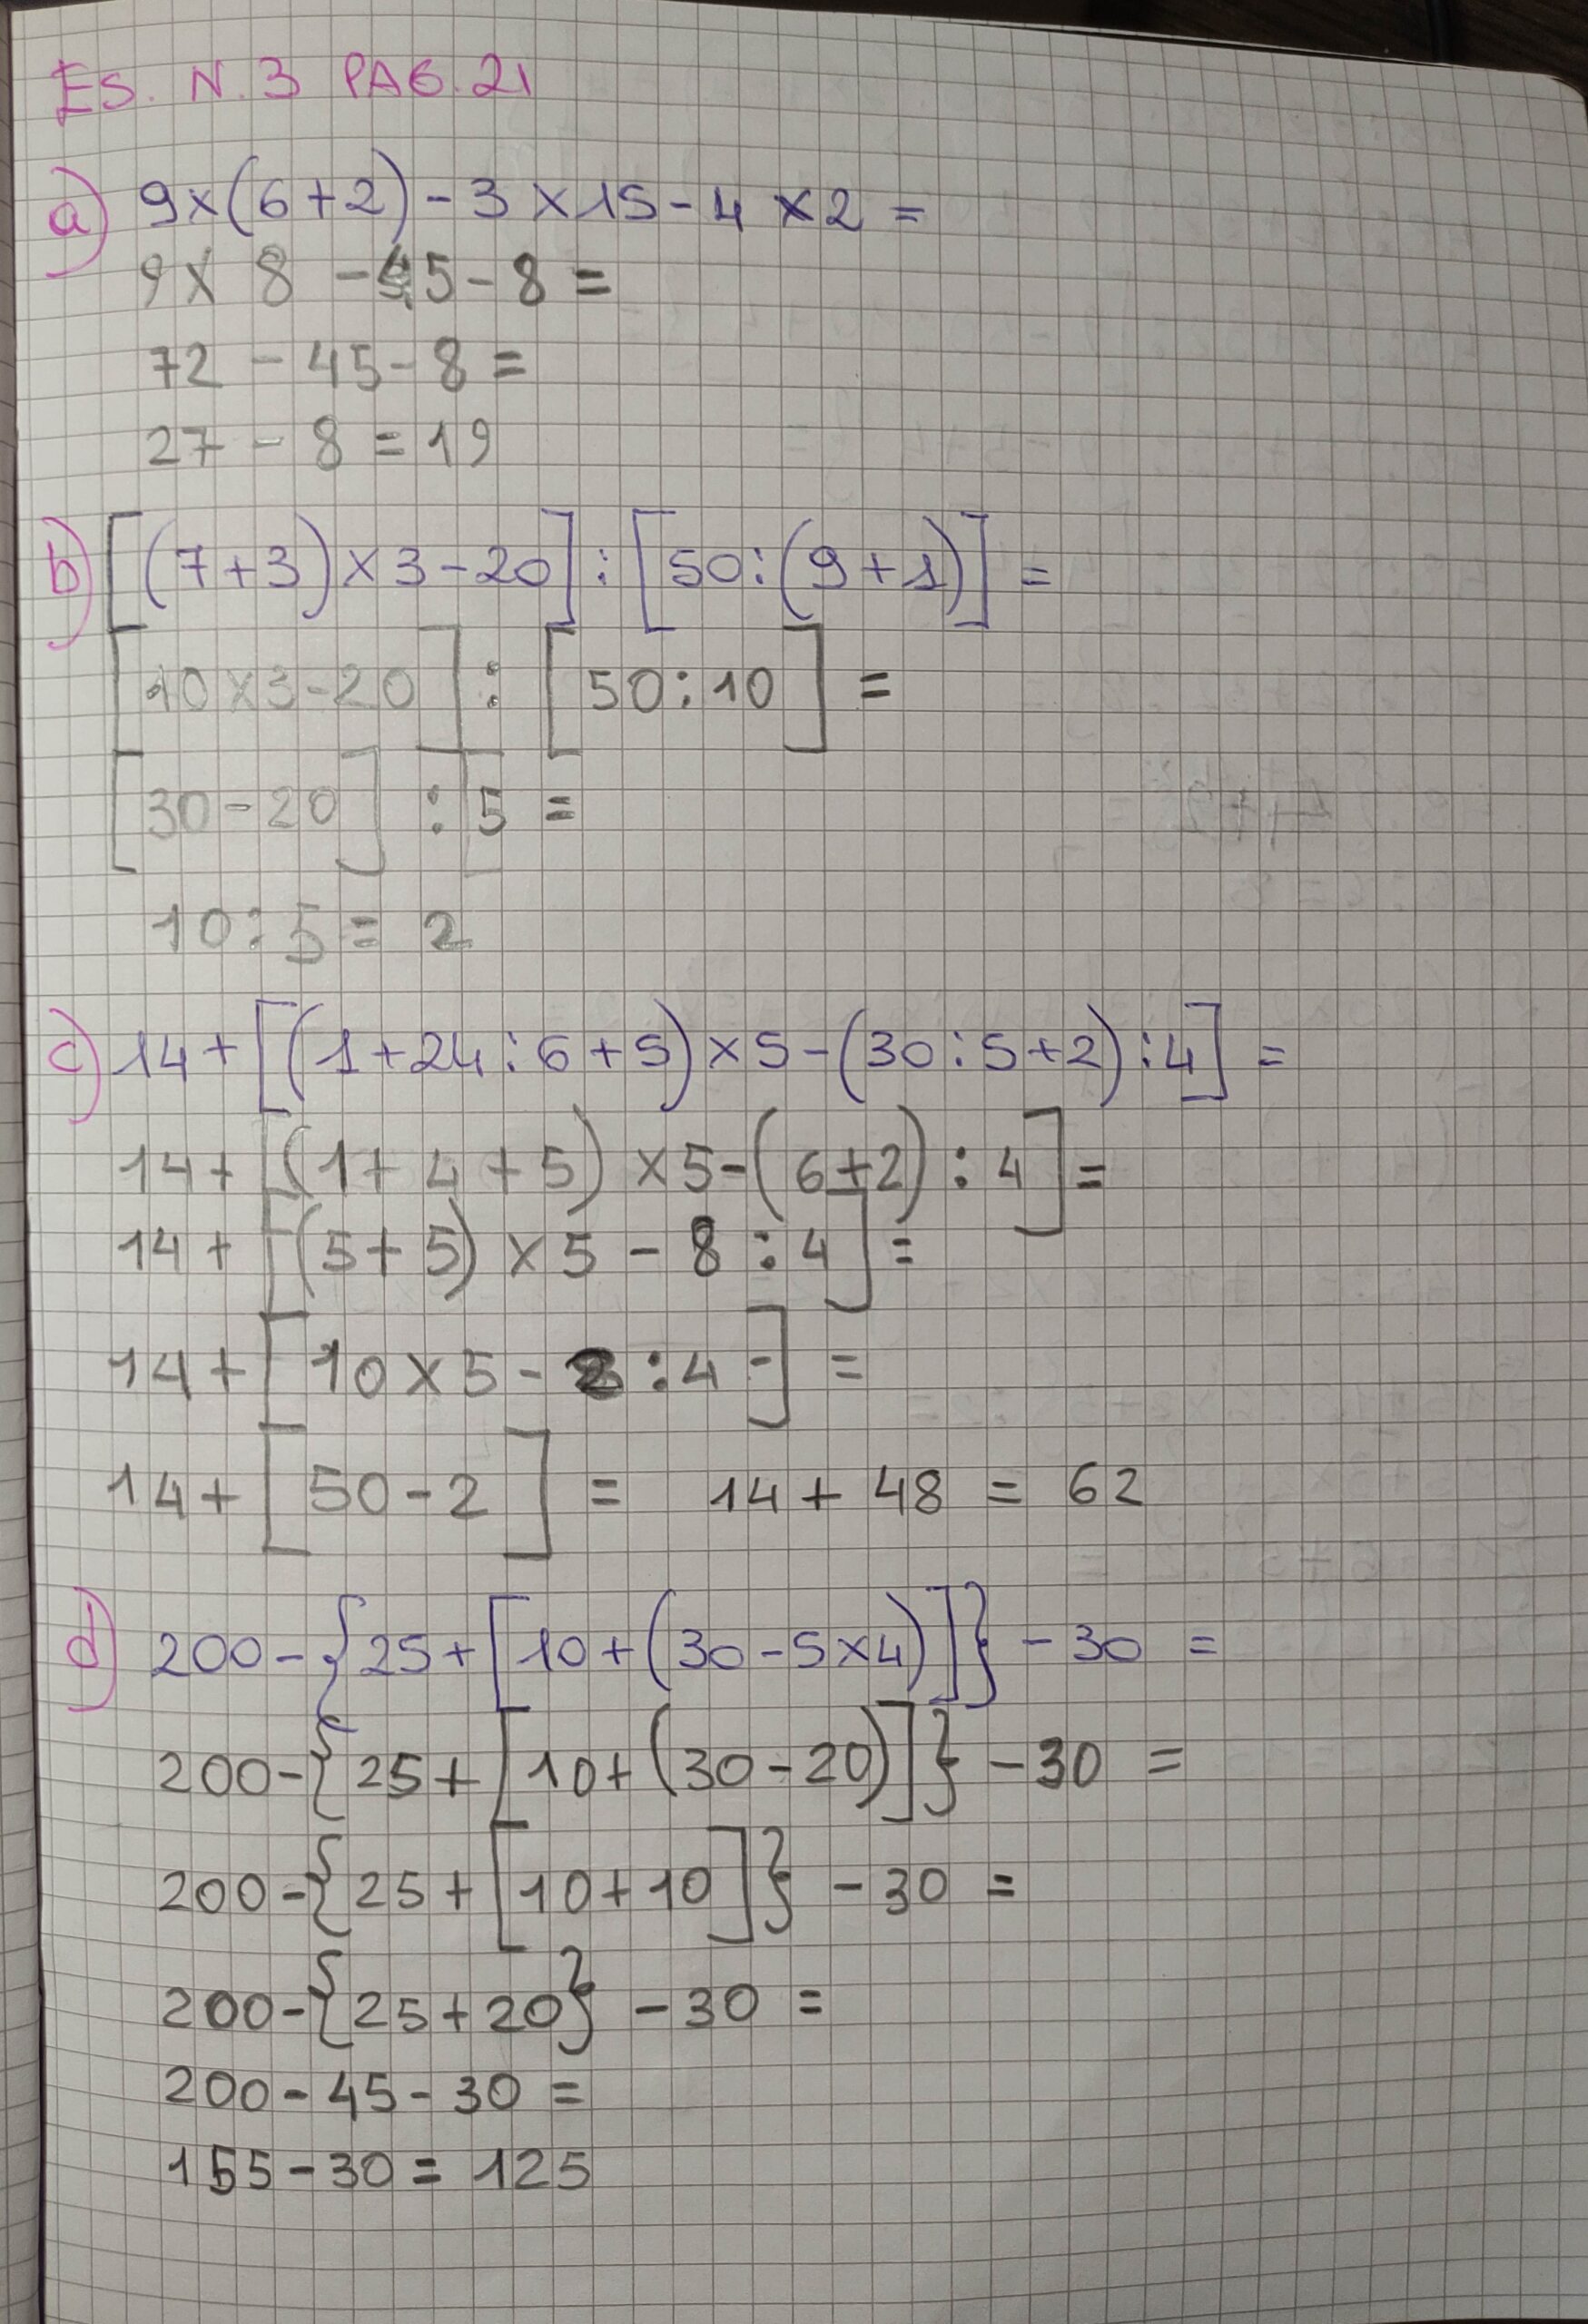 ES. N. 3 PAG. 21
a) 9×(6+2)-3×15-4×2=
9×8-45-8=
72-45-8=
27-8=19
b) [(7+3)×3-20]:[50:(9+1)]=
[10×3-20]:[50:10]=
[30-20]:5=
10:5=2
c) 14+[(1+24:6+5)×5-(30:5+2):4]=
14+[(1+4+5)×5-(6+2):4]=
14+[(5+5)×5-8:4]=
14+[10×5-8:4]=
14+[50-2]= 14+48=62
d) 200-{25+[10+(30-5×4)]}-30=
200-{25+[10+(30-20)]}-30=
200-{25+[10+10]}-30=
200-{25+20}-30=
200-45-30=
155-30=125